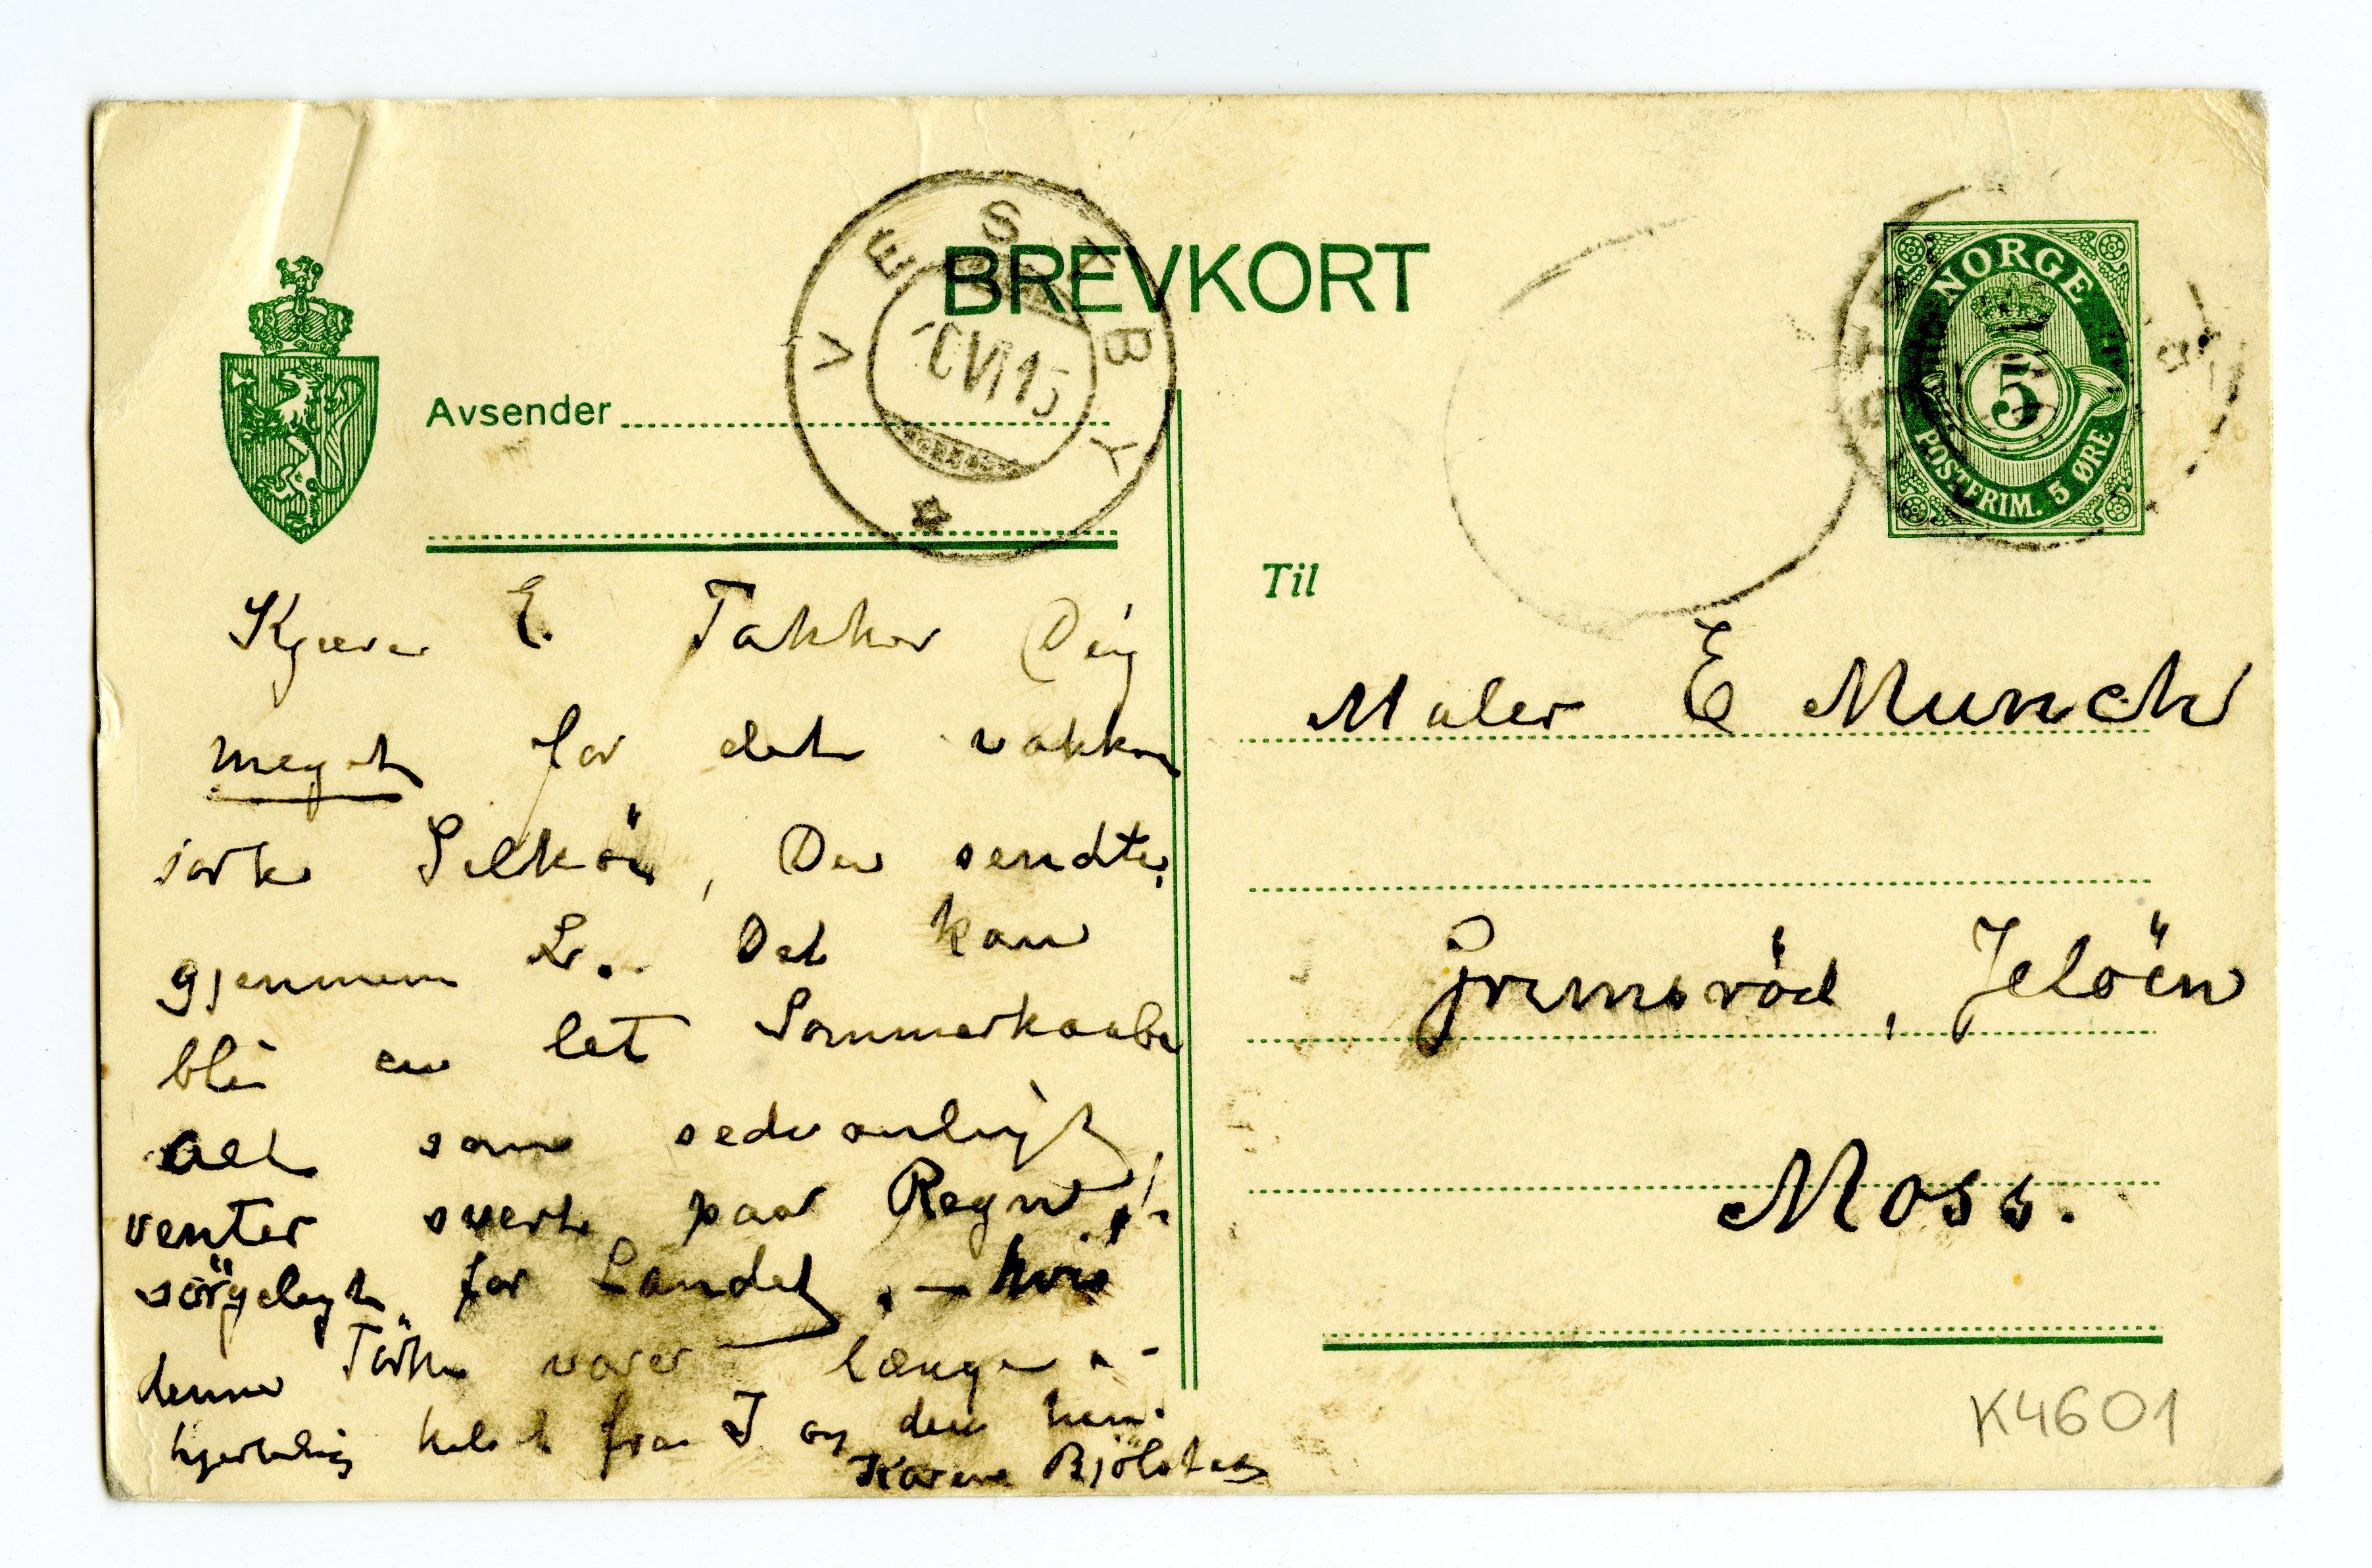 BREVKORT
VESTBY
VI 15
NORGE
5
POSTFRIM. 5 ØRE
Avsender
Kjære E. Takker Dig
meget for det vakkre
sorte Silketöi, Du sendte
gjennem L.. Det kan
bli en let Sommerkaabe
Alt som sedvanligt,
venter svert paa Regn, -
sörgeligt for Landet, - hvis
denne Törke varer længe. -
hjertelig hilset fra I. og din hen.
Karen Bjölstad
Til
Maler E Munch
Grimsröd, Jelöen
Moss.
K4601